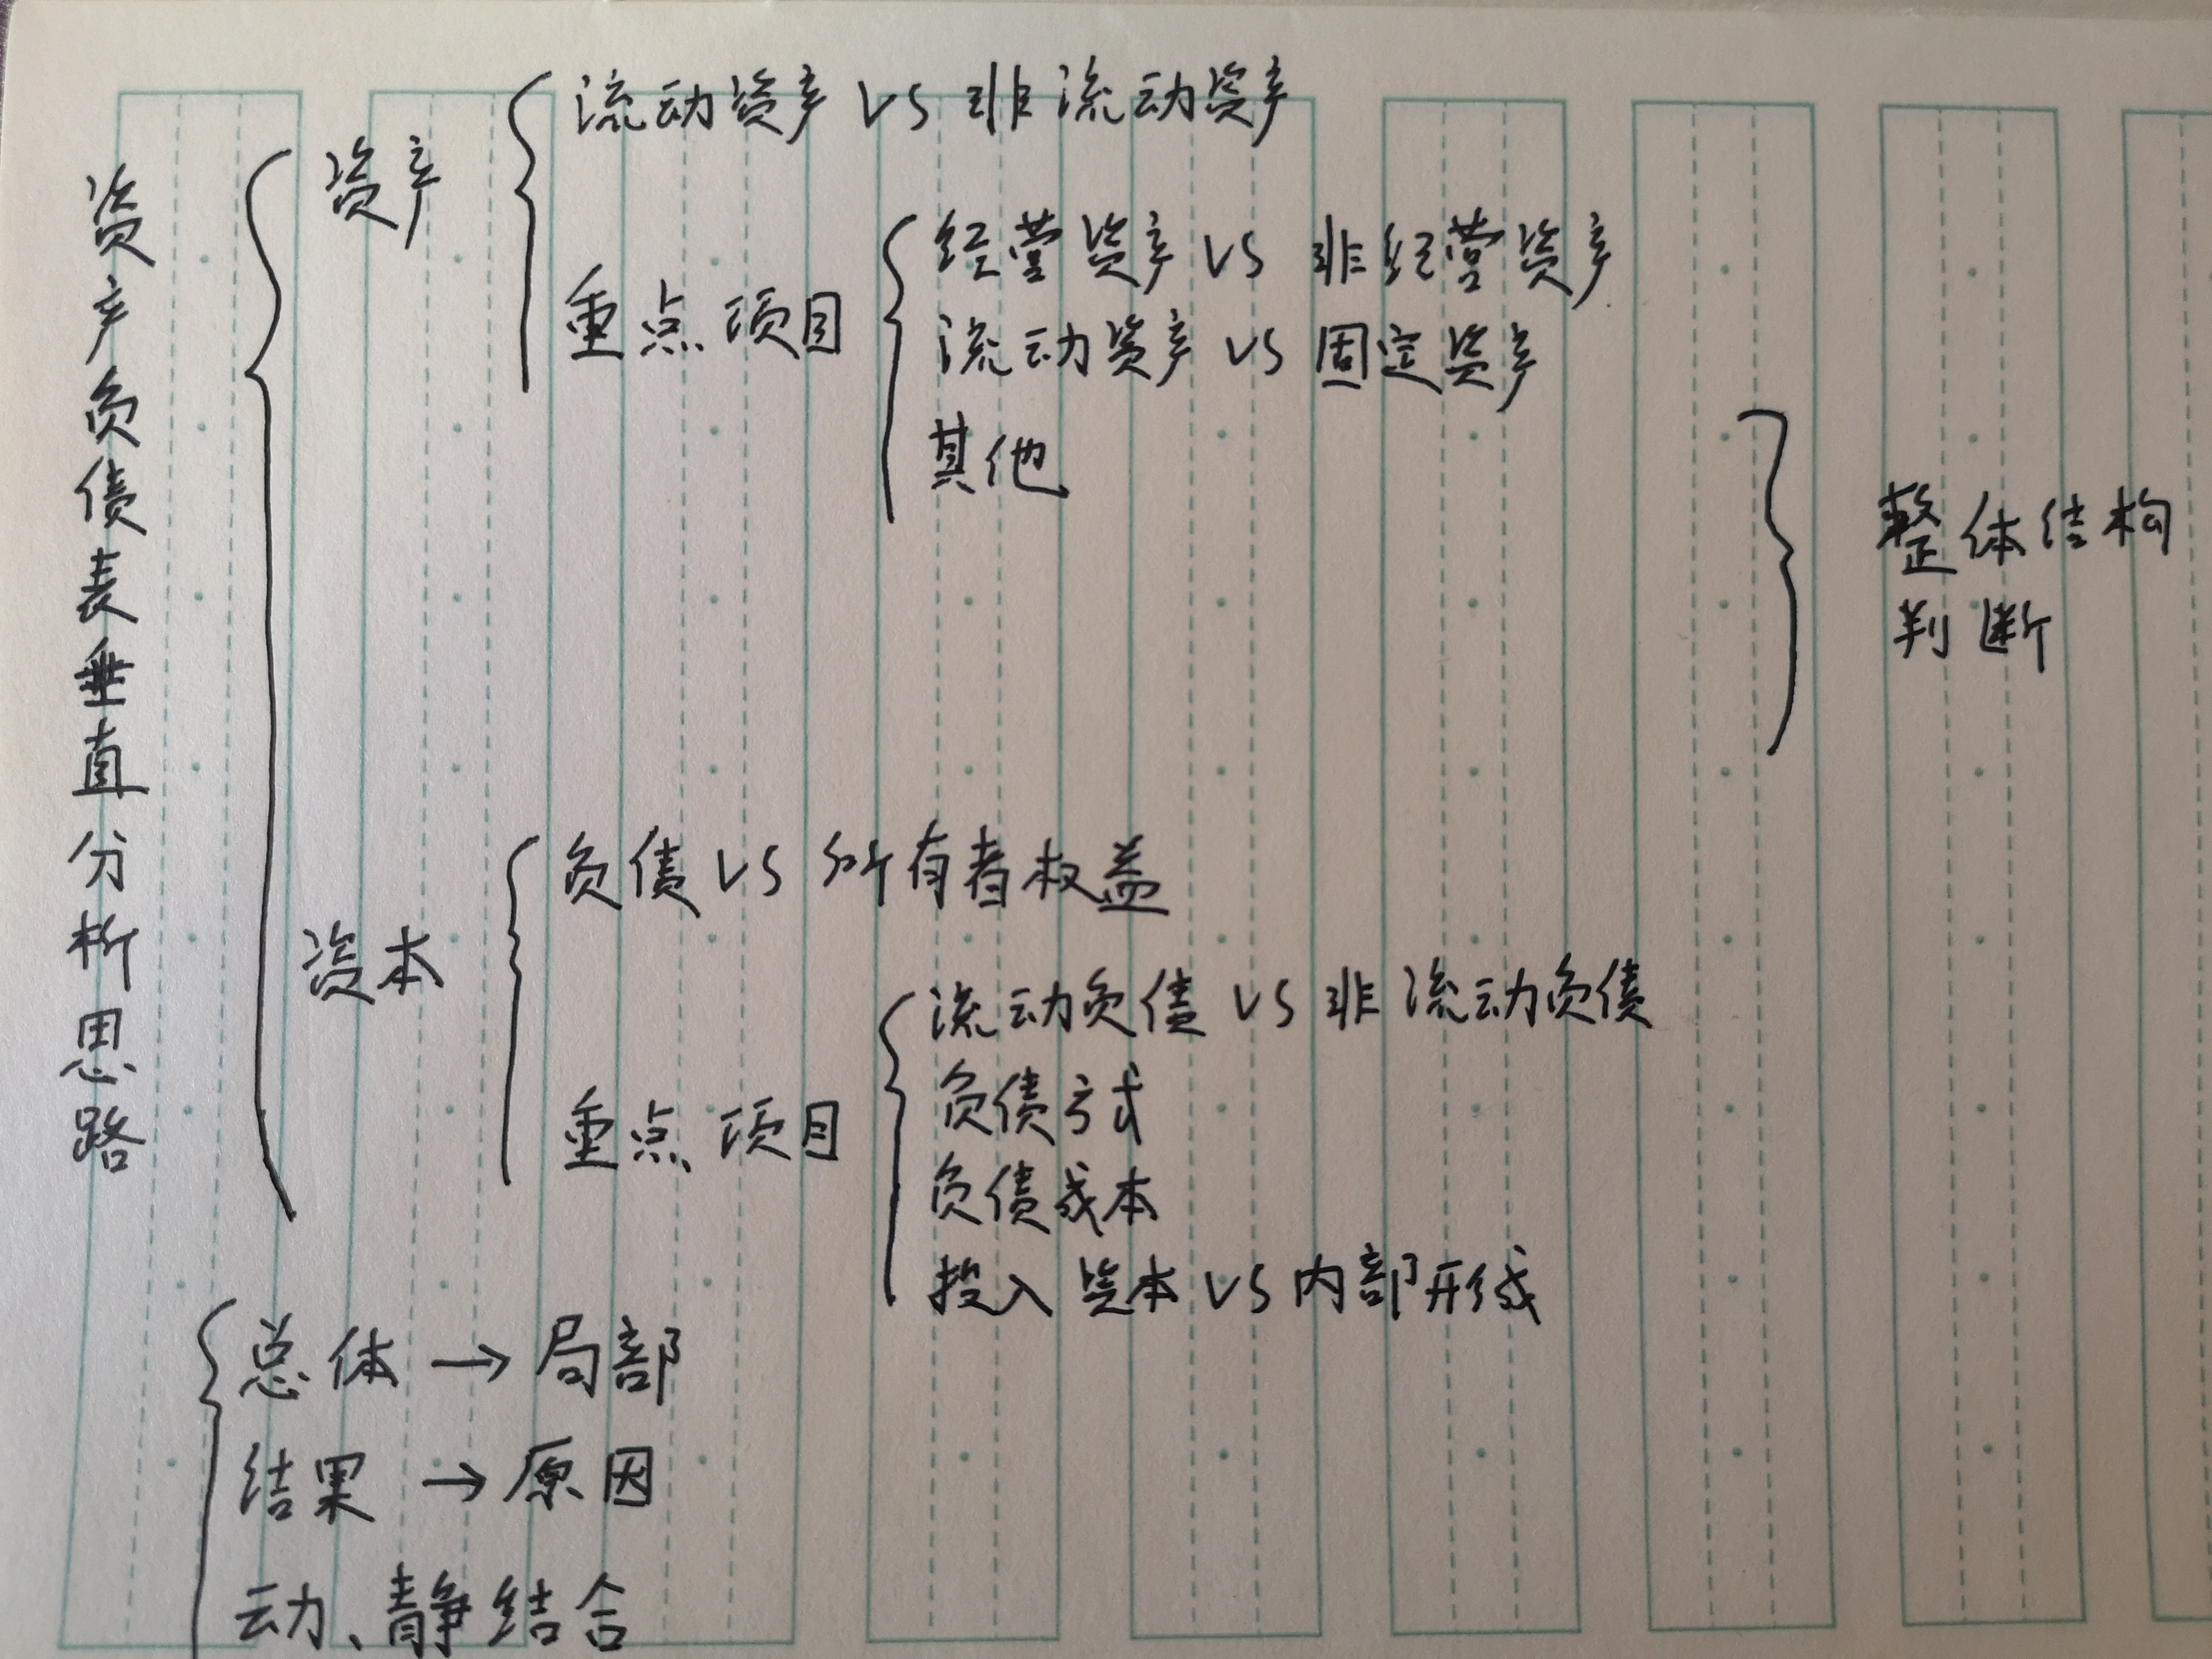 资产负债表垂直分析思路
资产
流动资产 VS 非流动资产
重点项目
经营资产 VS 非经营资产
流动资产 VS 固定资产
其他
资本
负债 VS 所有者权益
重点项目
流动负债 VS 非流动负债
负债方式
负债成本
投入资本 VS 内部形成
整体结构
判断
总体 → 局部
结果 → 原因
动、静结合